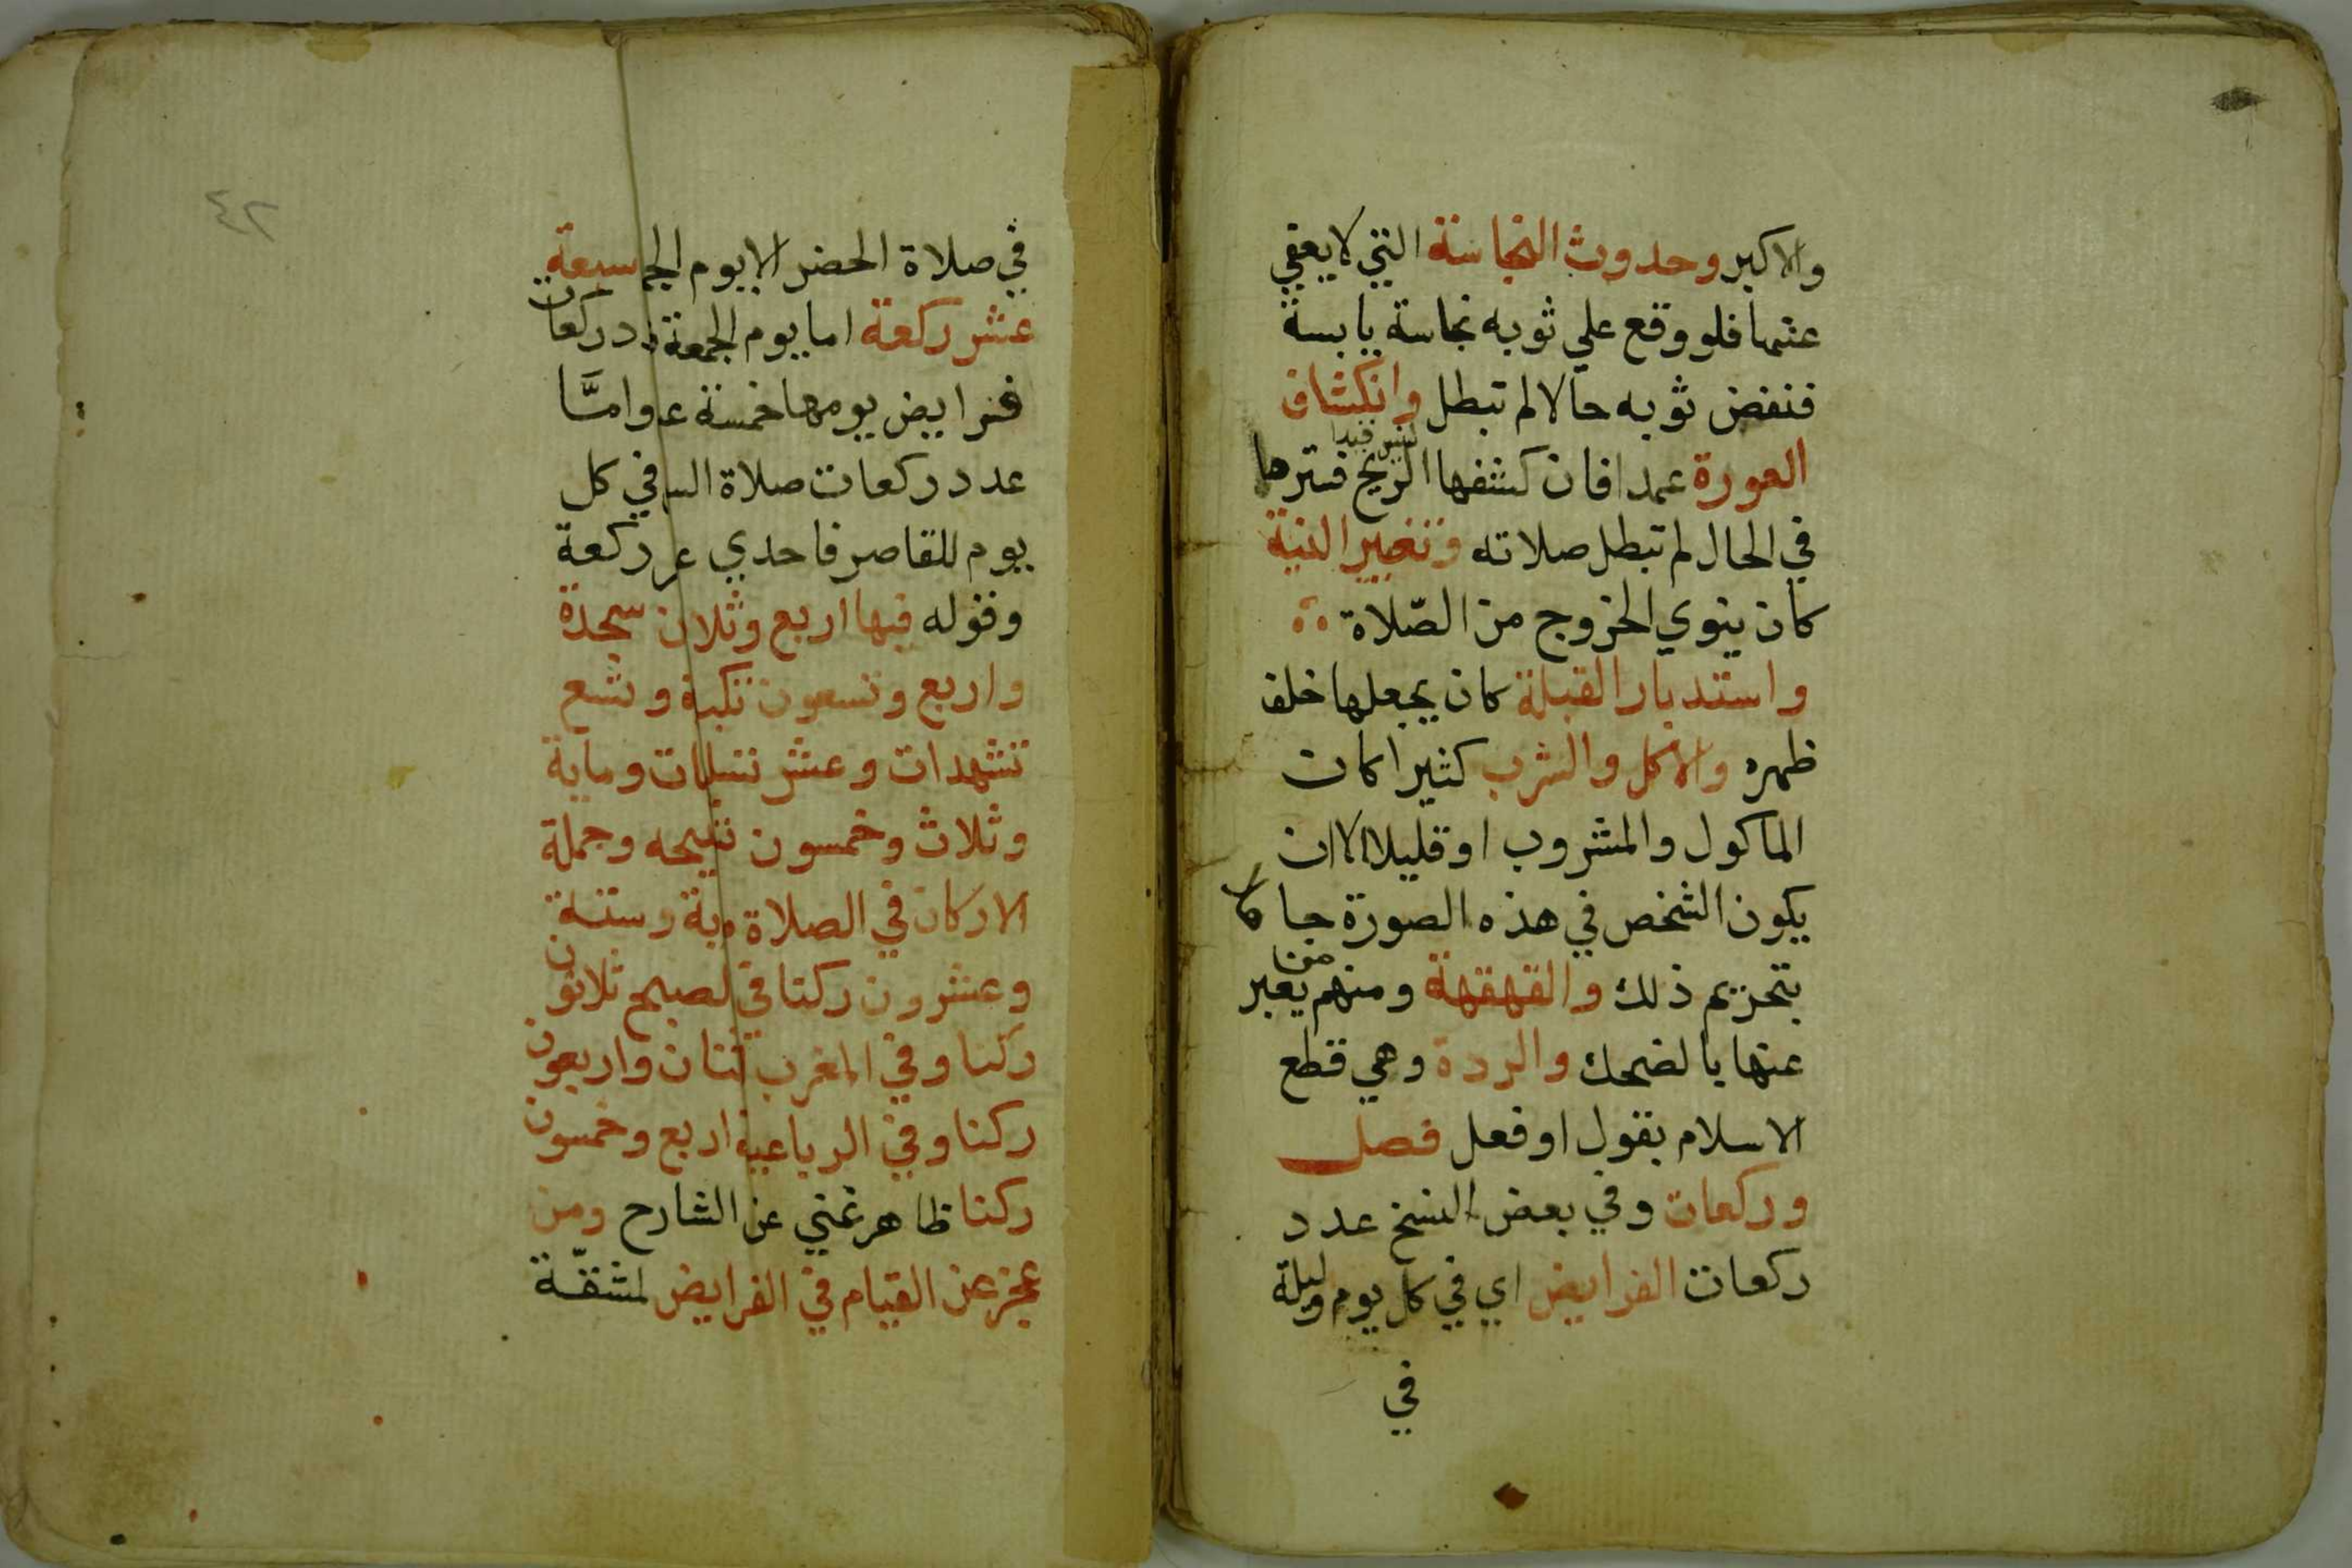 والاكبر وحدوث النجاسة التي لا يعفي
عنها فلو وقع علي ثوبه نجاسة يابسة
فنفض ثوبه حالا لم تبطل وانكشاف
العورة عمدا فان كشفها الريح فسترها
في الحال لم تبطل صلاته وتغيير النية
كان ينوي الخروج من الصّلاة
واستدبار القبلة كان يجعلها خلف
ظهره والاكل والشرب كثيرا كان
الماكول والمشروب او قليلا الا ان
يكون الشخص في هذه الصورة جاهلا
بتحريم ذلك والقهقهة ومنهم من يعبر
عنها بالضحك والردة وهي قطع
الاسلام بقول او فعل فصل
وركعات وفي بعض النسخ عدد
ركعات الفرايض اي في كل يوم وليلة
في
٤٢
في صلاة الحضر الا يوم الجم سبعة
عشر ركعة اما يوم الجمعة دد ركعات
فرايض يومها خمسة ع وامَّا
عدد ركعات صلاة الس في كل
يوم للقاصر فاحدي عر ركعة
وقوله فيها اربع وثلاثن سجدة
واربع وتسعون تكبة وتسع
تشهدات وعشر تسلمات وماية
وثلاث وخمسون تسبيحه وجملة
الاركان في الصلاة مية وستة
وعشرون ركنا في لصبح ثلاثون
ركنا وفي المغرب ثنان واربعون
ركنا وفي الرباعية اربع وخمسون
ركنا ظاهر غني عن الشارح ومن
عجز عن القيام في الفرايض لمشقّة